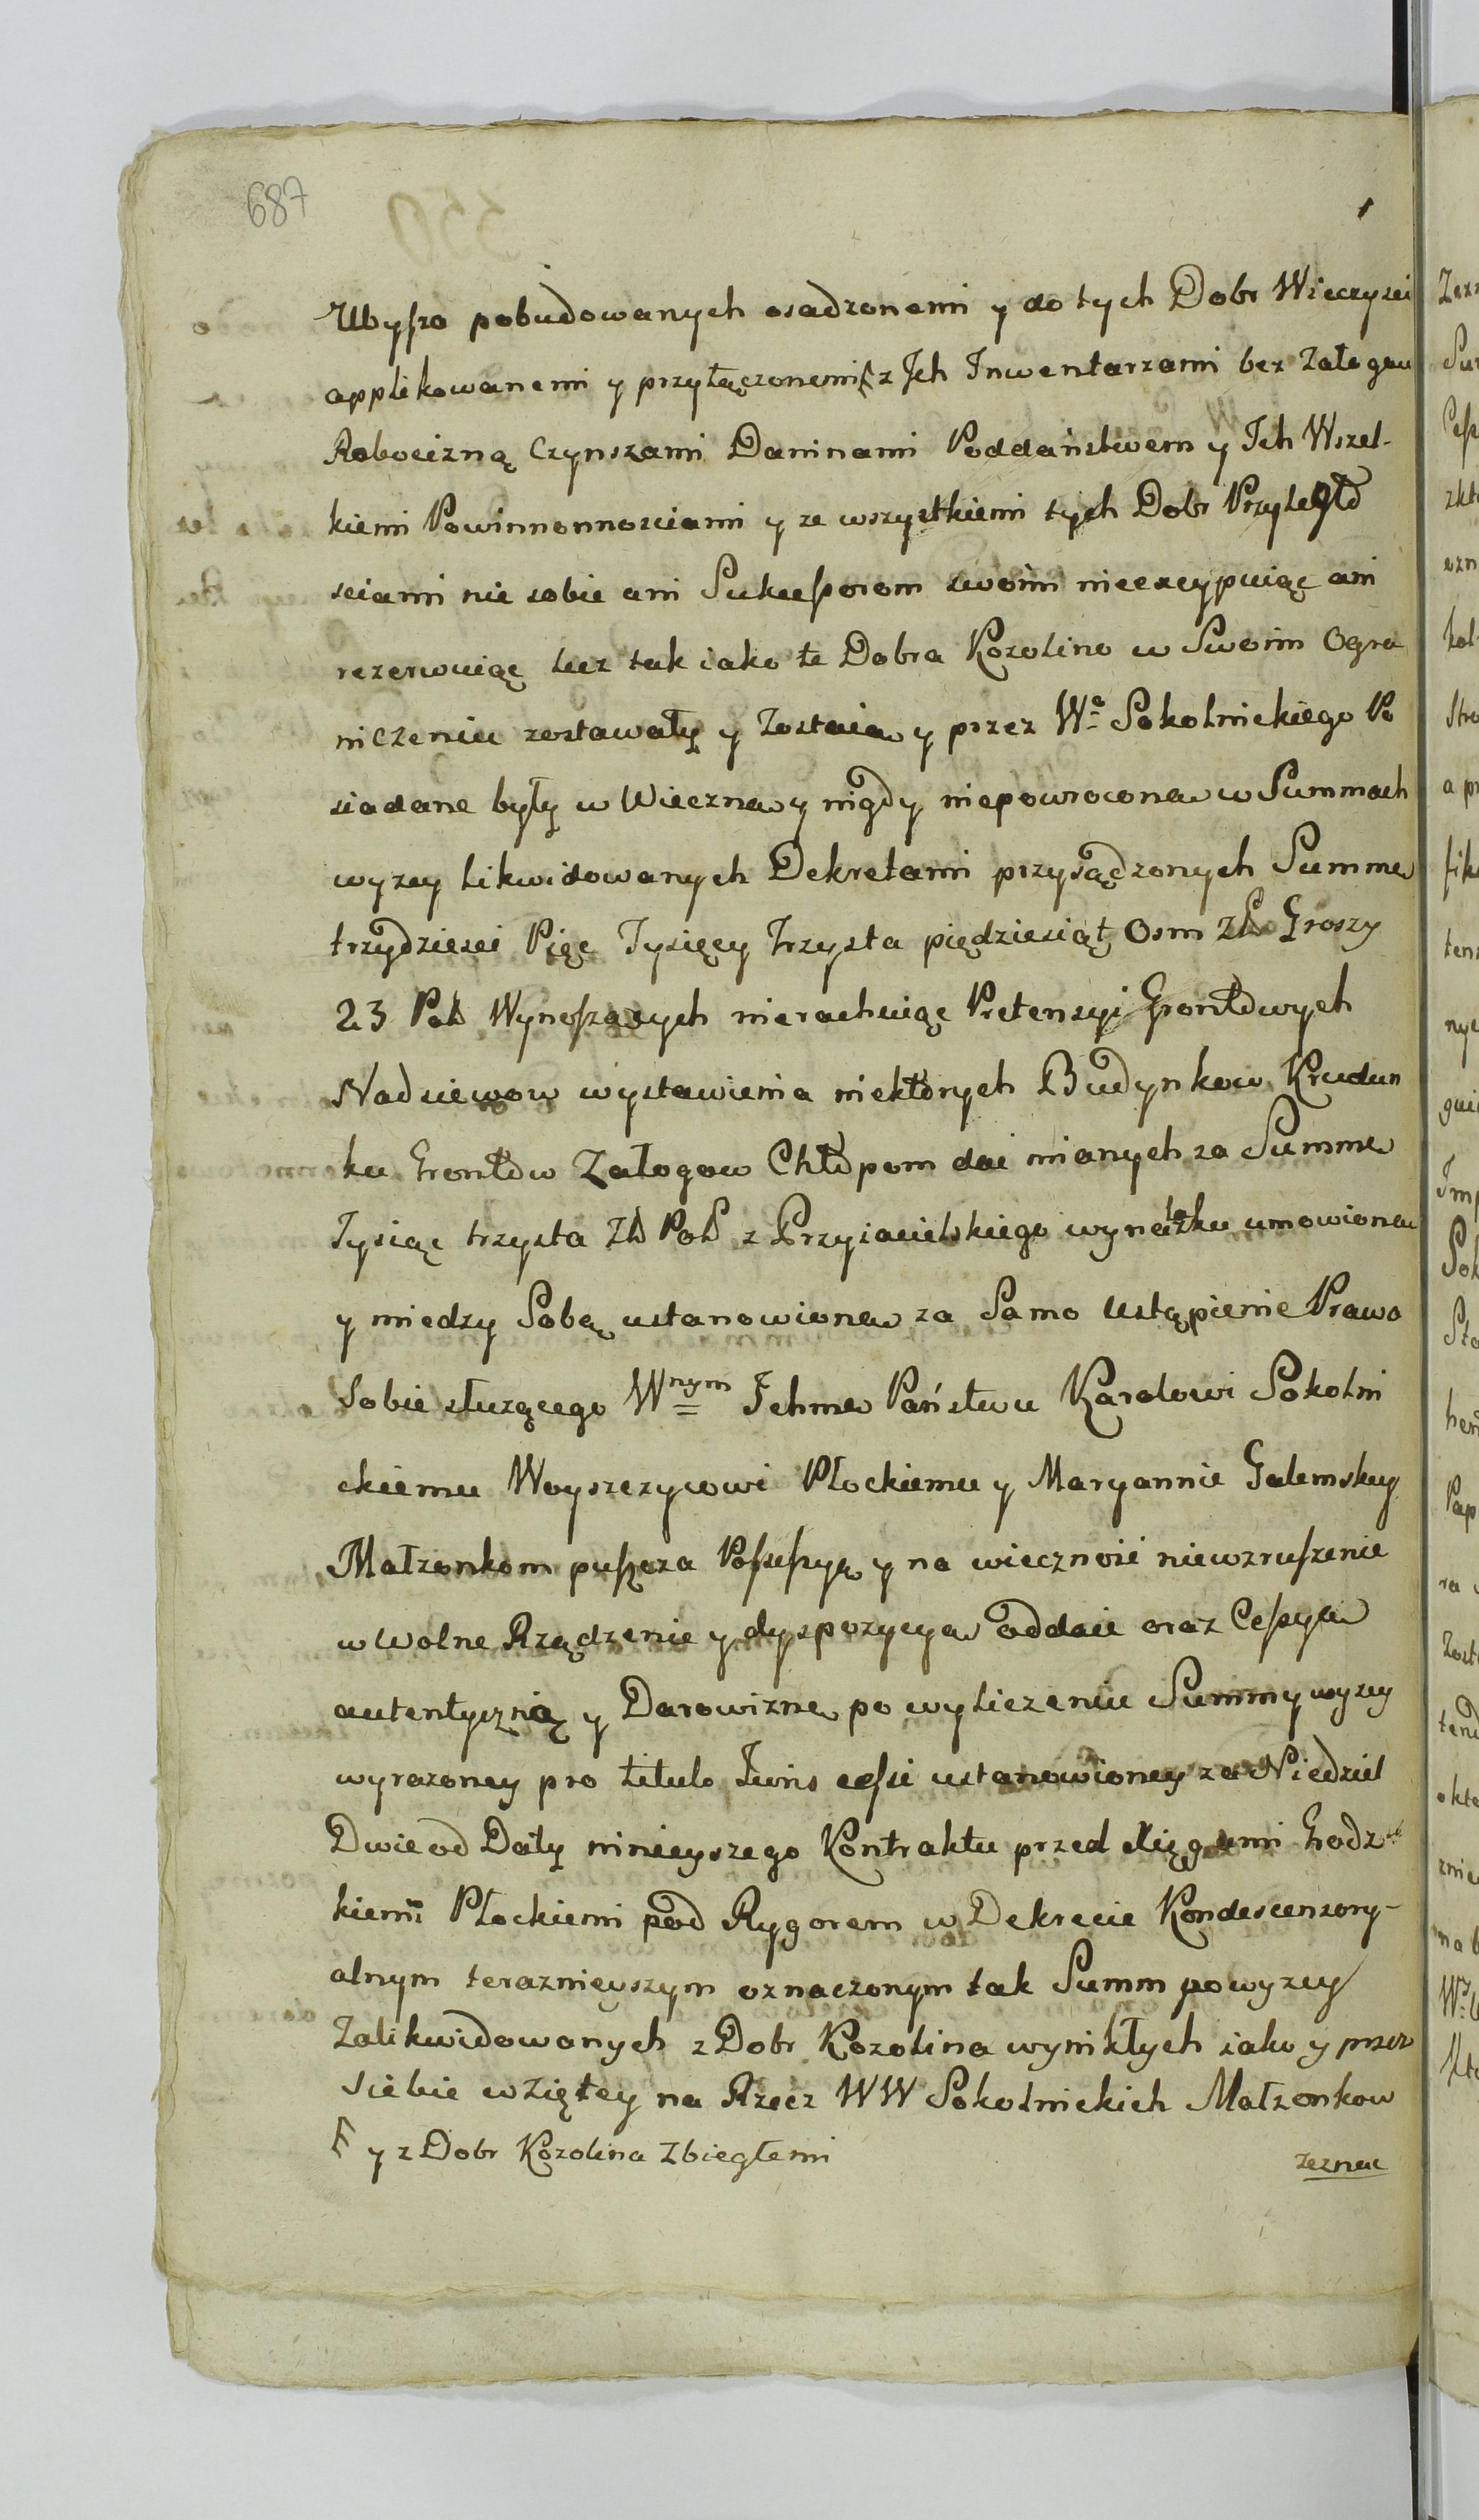 687
Ubyszo pobudowanych osadzonemi y do tych Dobr Wieczyscie
applikowanemi y przyłączonemi z Jch Inwentarzami bez Załogow
Robocizną Czynszami Daninami Poddaństwem y Jch Wszel-
kiemi Powinnonnosciami y ze wszystkiemi tych Dobr Przyległo
sciami nie sobie ani Sukcessorom swoim nieexcypuiąc ani
rezerwuiąc lecz tak iako te Dobra Kozolino w Swoim Ogra
niczeniu zostawały y Zostaia y przez Wo Sokolnickiego Po
siadane były w Wieczna y nigdy niepowrocona w Summach
wyzey likwidowanych Dekretami przysądzonych Summe
trzydziesci Pięc Tysięcy Trzysta pięDziesiąt Osm Zł Groszy
23 Pol Wynoszących nierachuiąc Pretensyi Grontowych
Nadsiewow wystawienia niektorych Budynkow Krudun
ku Grontow Załogow Chłopom dai mianych za Summe
Tysiąc trzysta Zł Pol z Przyiacielskiego wynalazku umowiona
y miedzy Sobą ustanowiona za Samo Ustąpienie Prawa
Sobie słuzącego Wnym Jchmc Państwu Karolowi Sokolni
ckiemu Woyszczycowi Płockiemu y Maryannie Galemskiey
Małzonkom puszcza Possessyą y na wiecznosć niewzruszenie
w Wolne Rządzenie y dyspozycya oddaie oraz Cessya
autentyczną y Darowizne po wyliczeniu Summy wyzey
wyrazoney pro titulo Juris cessi ustanowioney za Niedziel
Dwie od Daty ninieyszego Kontraktu przed Xięgami Grodz
kiemi Płockiemi pod Rygorem w Dekrecie Kondescenzory-
alnym terazmieyszym oznaczonym tak Summ powyzey
Zalikwidowanych z Dobr Kozolina wynikłych iako y przez
siebie wziętey na Rzecz WW Sokolnickich Małzonkow
y z Dobr Kozolina Zbiegłemi
zeznac